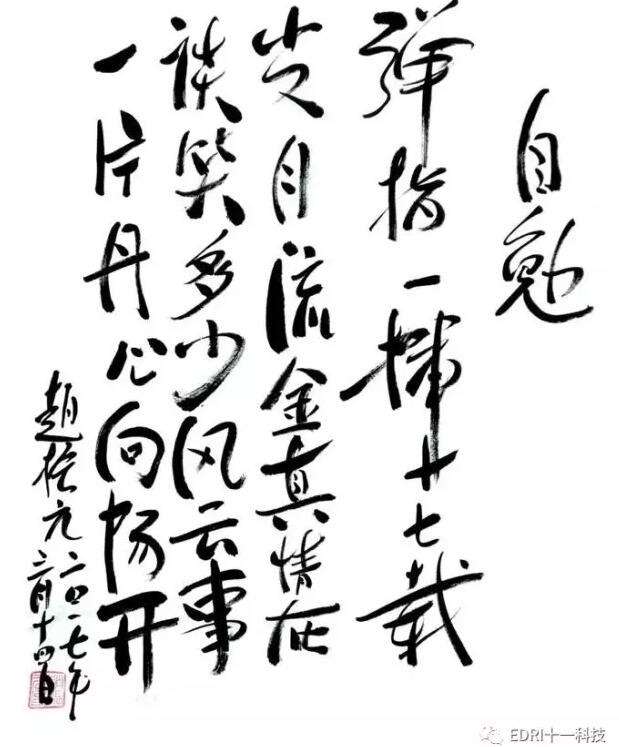 自勉
弹指一挥十七载
岁月流金真情在
谈笑多少风云事
一片丹心向阳开
趙振元二〇一七年
三月十四日
EDRI十一科技